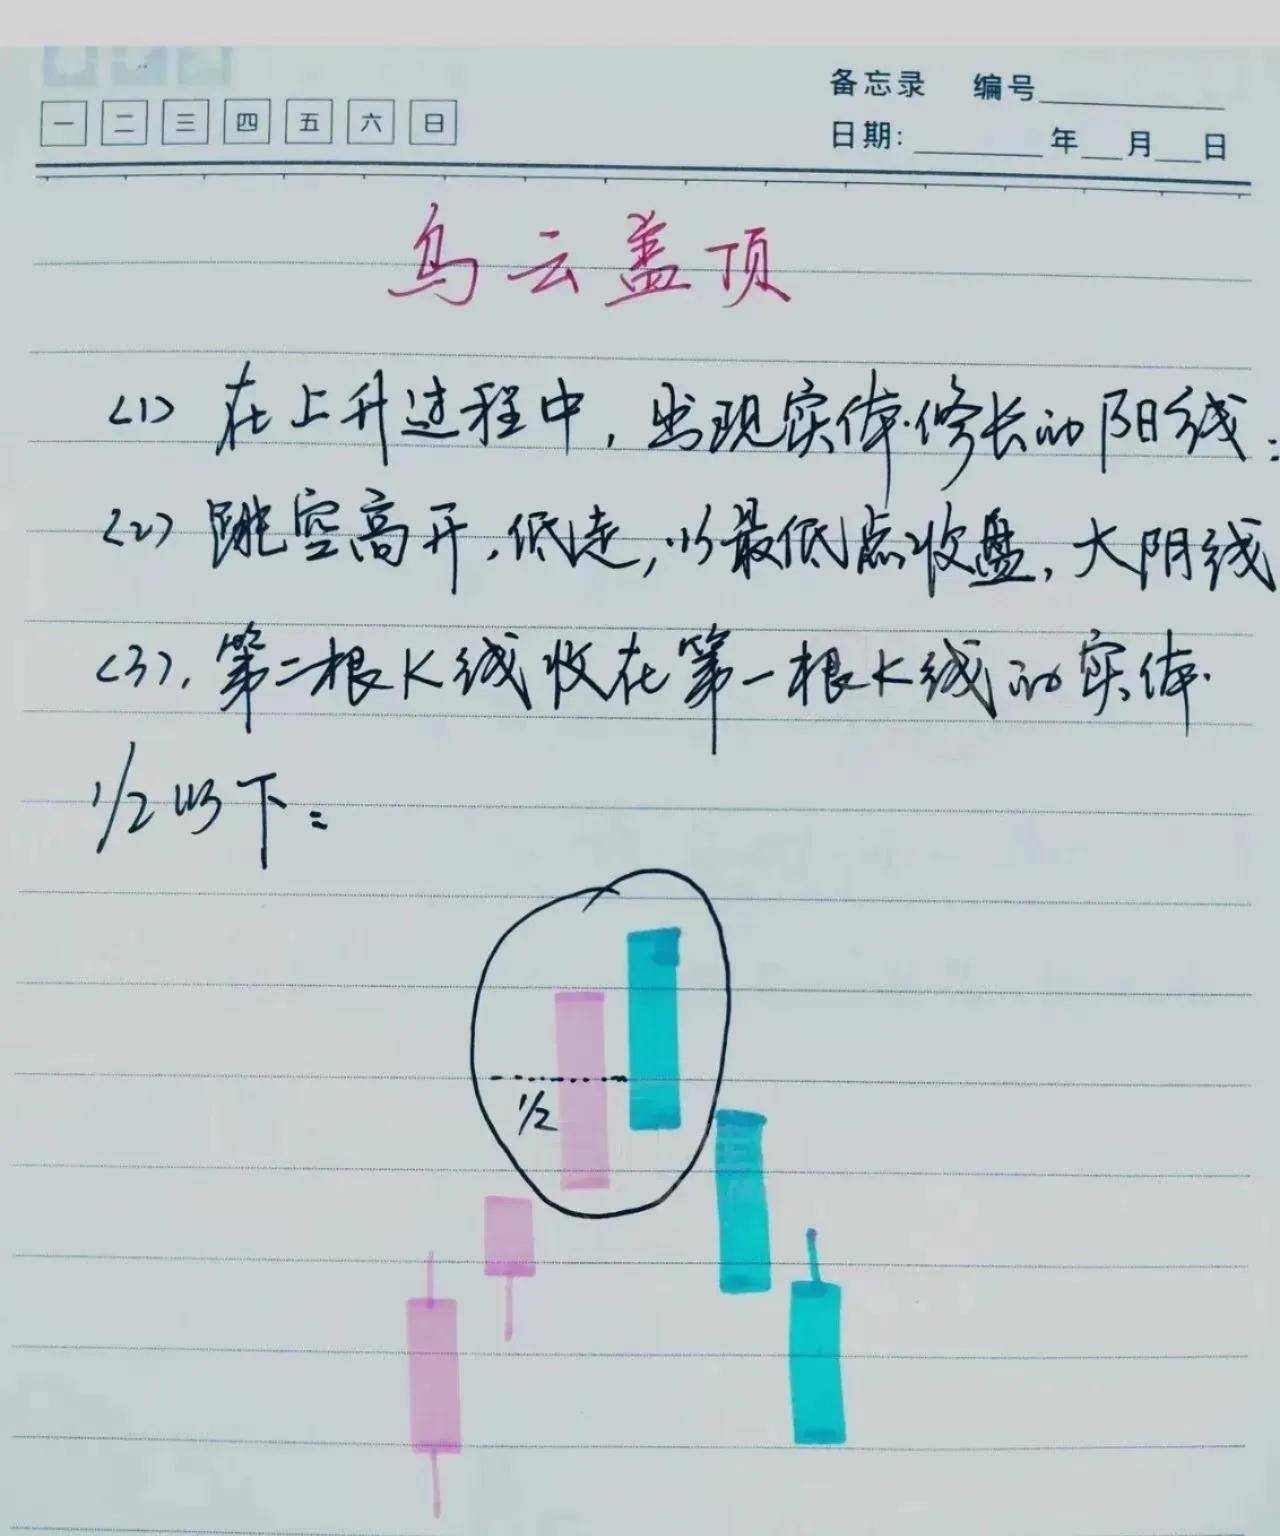 备忘录 编号
一 二 三 四 五 六 日
日期: 年 月 日
乌云盖顶
(1) 在上升过程中，出现实体修长的阳线；
(2) 跳空高开，低走，以最低点收盘，大阴线
(3)，第二根K线收在第一根K线的实体
1/2以下：
1/2